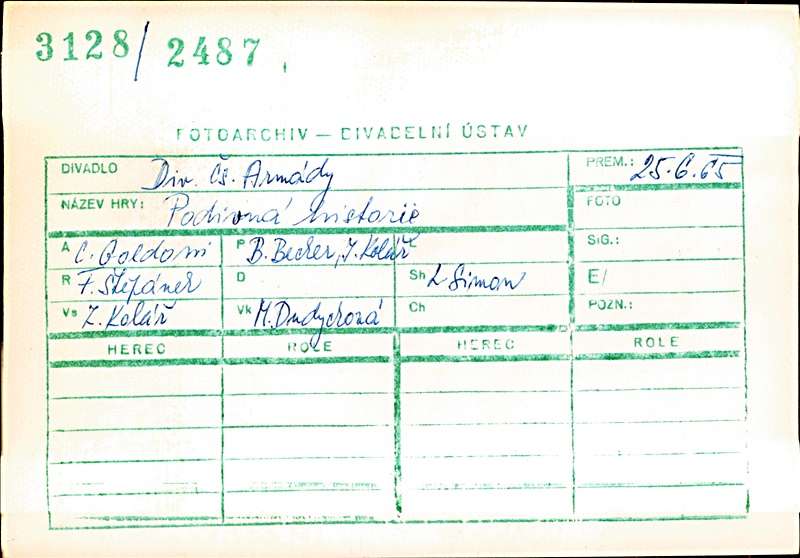 3128/2487
FOTOARCHIV — DIVADELNÍ ÚSTAV
DIVADLO Div. čs. Armády
PREM.: 25.6.65
NÁZEV HRY: Podivná historie
FOTO
A C. Goldoni P B. Becker, J. Kolář
SIG.:
R F. Štěpánek D Sh L. Simon
E/
Vs Z. Kolář Vk M. Dudychová Ch
POZN.:
HEREC ROLE HEREC ROLE